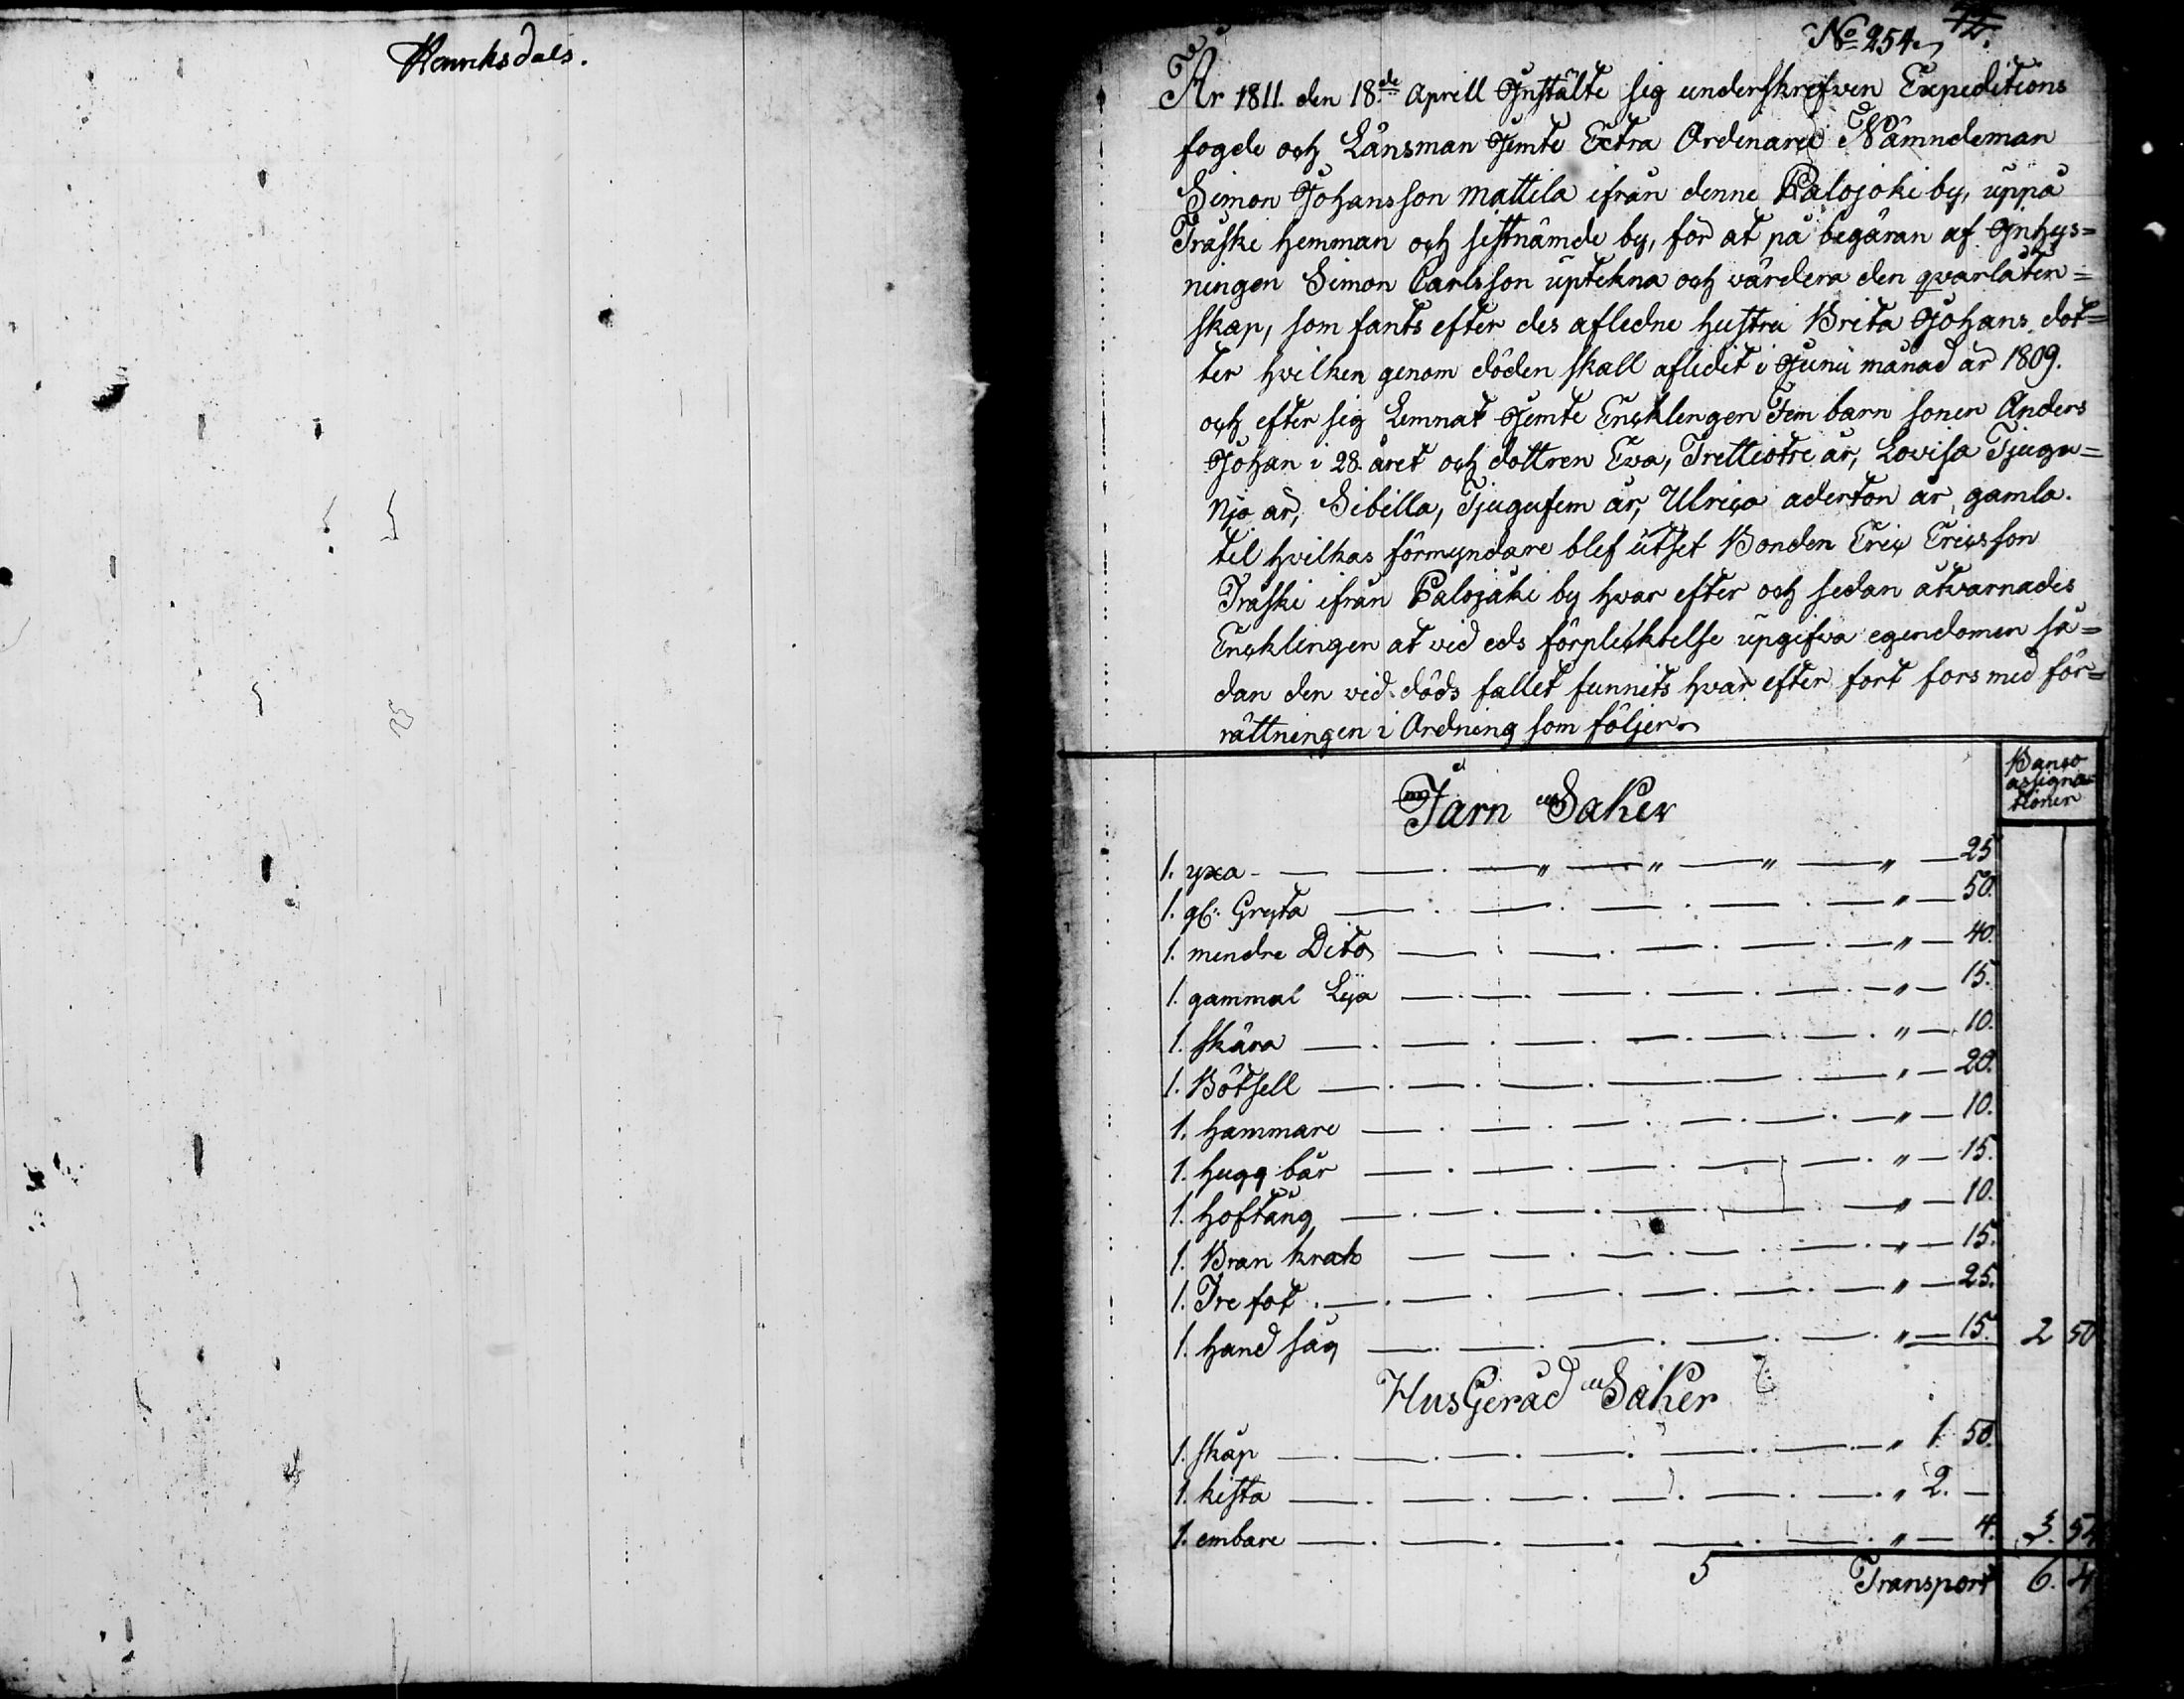 Henriksdals.
No 254.
År 1811. den 18.de Aprill Instälte sig underskrefven Expeditions
fogde och Länsman Jemte Extra Ordenarie Nämndeman
Simon Johansson Mattila ifrån denne Palojoki by, uppå
Träski hemman och sistnämde by, för at på begäran af Inhys=
ningen Simon Carlsson uptekna och värdera den qvarlåten=
skap, som fants efter des aflidne hustru Brita Johans dot=
ter hvilken genom döden skall aflidit i Junii månad år 1809.
och efter sig Lemnat Jemte Encklingen Fem barn sonen Anders
Johan i 28. året och dottren Eva, Trettiotre år, Lovisa Tjugu=
Njo år, Sibilla, Tjugufem år, Ulrica aderton år gamla.
til hvilkas förmyndare blef utset Bonden Eric Ericsson
Träski ifrån Palojåki by hvar efter och sedan åtvarnades
Encklingen at vid eds förplicktelse upgifva egendomen så=
dan den vid döds fallet funnits hvar efter fort fors med för=
rättningen i Ordning som följer
Banco
assigna=
tioner
Jarn Saker
1. yxa - — — " — " — " — " — 25
1. gl: Gryta — — — — " — 50.
1. mindre Dito — — — — " — 40.
1. gammal Lija — — — — " — 15.
1. skära — — — — " — 10.
1. Bötsell — — — — " — 20.
1. hammare — — — — " — 10.
1. hugg bår — — — — " — 15.
1. hoftång — — — — " — 10.
1. Bran krak — — — — " — 15.
1. Tre fot — — — — " — 25.
1. hand såg — — — — " — 15. 2 50
HusGeråd Saker
1. skåp — — — — " 1 50.
1. kista — — — — " 2. —
1. embare — — — — " — 4. 3. 54
Transport 6. 4